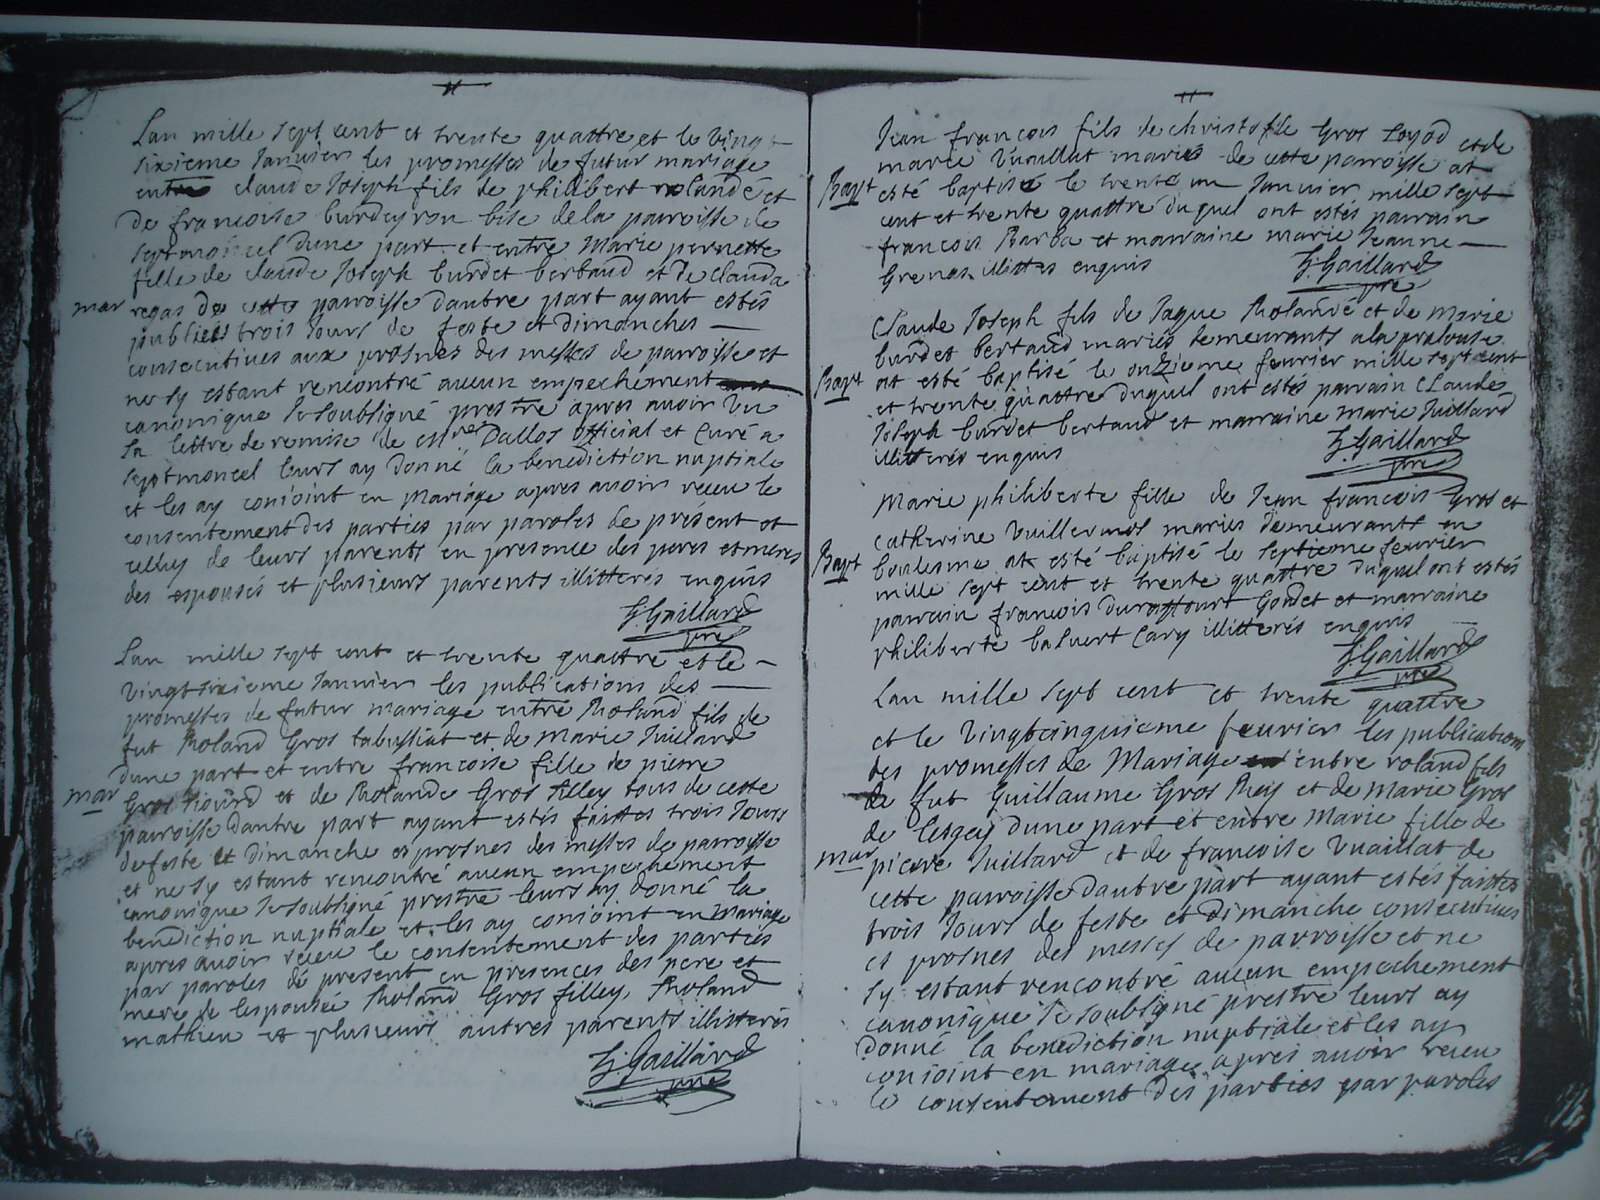 Lan mille sept cent et trente quattre et le vingt
sixieme Janvier les promesses de futur mariage
entre claude Joseph fils de philibert rolandé et
De francoise burdeyron bise de la parroisse de
septmoncel dune part et entre Marie pernette
fille de claude Joseph burdet bertaud et de clauda
mar regas de cette parroisse dautre part ayant estés
publiees trois Jours de feste et dimanches
consecutives aux prosnes des messes de parroisse et
ne sy estant rencontré aucun empechement
canonique Je soubsigné prestre apres avoir vu
la lettre de remise de Dallos official et curé a
septmoncel leurs ay donné la benediction nuptiale
et les ay conioint en Mariage apres avoir receu le
consentement des parties par paroles de présent et
celluy de leurs parents en presence des peres et meres
des espousés et plusieurs parents illitterés enquis
J. Gaillard
pre
Lan mille sept cent et trente quattre et le
vingt sixieme Janvier les publications des
promesses de futur mariage entre Roland fils de
fut Roland Gros tabussiat et de Marie Juillard
dune part et entre francoise fille de pierre
mar Gros et de Rolande Gros filley tous de cette
parroisse dautre part ayant estés faittes trois Jours
de feste et dimanche es prosnes des messes de parroisse
et ne sy estant rencontré aucun empechement
canonique Je soubsigné prestre leurs ay donné la
benediction nuptiale et les ay conioint en mariage
apres avoir receu le consentement des parties
par paroles de present en presences des pere et
mere de lespousée Roland Gros filley, Roland
mathieu et plusieurs autres parents illitterés
J. Gaillard
pre
Jean francois fils de christofle Gros et de
marie vuaillat mariés de cette parroisse at
Bapt esté baptisé le trente un Janvier mille sept
cent et trente quattre duquel ont estés parrain
francois Barba et marraine marie Jeanne
Grenas illittes enquis
J. Gaillard
pre
Claude Joseph fils de Jaque Rolandé et de marie
burdet bertaud mariés demeurants a la
Bapt at esté baptisé le onzieme fevrier mille sept cent
et trente quattre duquel ont estés parrain Claude
Joseph burdet bertaud et marraine marie Juillard
illitterés enquis
J. Gaillard
pre
Marie philiberte fille de Jean francois Gros et
catherine vuillermos mariés demeurants en
Bapt boulesme at esté baptisé le septieme fevrier
mille sept cent et trente quattre duquel ont estés
parrain francois duraffourt Godet et marraine
philiberte Cary illitterés enquis
J. Gaillard
pre
Lan mille sept cent et trente quattre
et le vingtcinquieme fevrier les publications
des promesses de Mariage entre roland fils
de fut Guillaume Gros et de Marie Gros
de dune part et entre Marie fille de
mar pierre Juillard et de francoise vuaillat de
cette parroisse dautre part ayant estés faittes
trois Jours de feste et dimanche consecutives
es prosnes des messes de parroisse et ne
sy estant rencontré aucun empechement
canonique Je soubsigné prestre leurs ay
donné la benediction nuptiale et les ay
conioint en mariage apres avoir receu
le consentement des parties par paroles